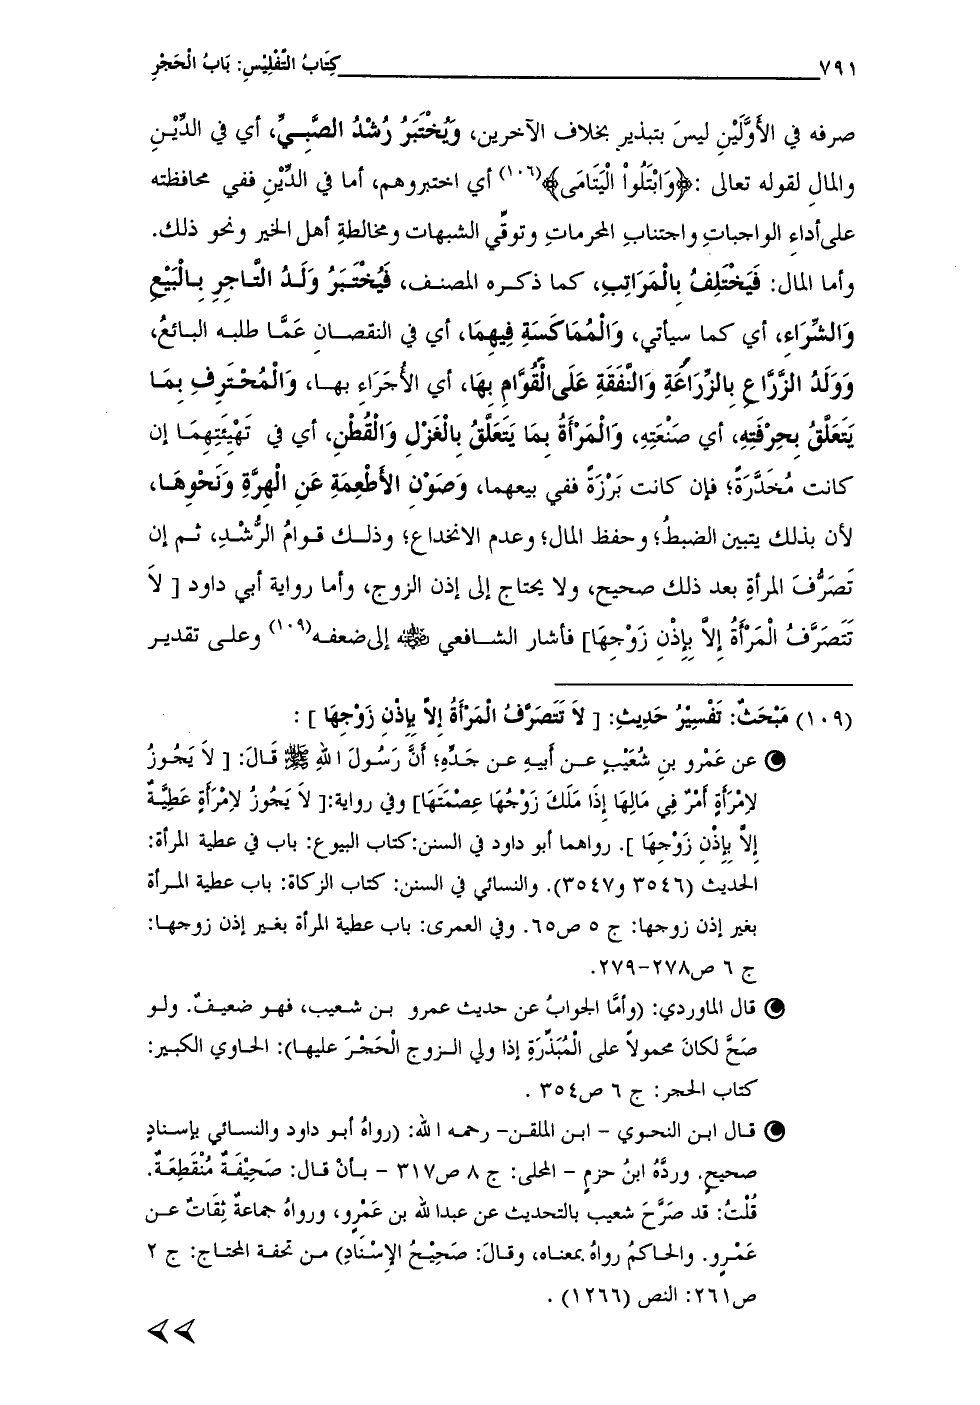 ٧٩١ كِتَابُ التَّفْلِيْسِ: بَابُ الْحَجْرِ
صرفه في الأَوَّلَيْنِ ليسَ بتبذير بخلاف الآخرين، وَيُخْتَبَرُ رُشْدُ الصَّبِيِّ، أي في الدِّيْنِ
والمالِ لقوله تعالى :﴿وَابْتَلُواْ الْيَتَامَى﴾(١٠٦) أي اختبروهم، أما في الدِّيْنِ ففي محافظته
على أداءِ الواجباتِ واجتنابِ المحرماتِ وتوقِّي الشبهات ومخالطةِ أهل الخير ونحو ذلك.
وأما المال: فَيَخْتَلِفُ بِالْمَرَاتِبِ، كما ذكره المصنف، فَيُخْتَبَرُ وَلَدُ التَّاجِرِ بِالْبَيْعِ
وَالشِّرَاءِ، أي كما سيأتي، وَالْمُمَاكَسَةِ فِيهِمَا، أي في النقصانِ عَمَّا طلبه البائعُ،
وَوَلَدُ الزَّرَّاعِ بِالزِّرَاعَةِ وَالنَّفَقَةِ عَلَى الْقُوَّامِ بِهَا، أي الأُجَرَاءِ بها، وَالْمُحْتَرِفِ بِمَا
يَتَعَلَّقُ بِحِرْفَتِهِ، أي صَنْعَتِهِ، وَالْمَرْأَةُ بِمَا يَتَعَلَّقُ بِالْغَزْلِ وَالْقُطْنِ، أي في تَهْيِئَتِهِمَا إن
كانت مُخَدَّرَةً؛ فإن كانت بَرْزَةً ففي بيعهما، وَصَوْنِ الأَطْعِمَةِ عَنِ الْهِرَّةِ وَنَحْوِهَا،
لأن بذلك يتبين الضبطُ؛ وحفظ المال؛ وعدم الانخداع؛ وذلك قوامُ الرُّشْدِ، ثم إن
تَصَرُّفَ المرأةِ بعد ذلك صحيح، ولا يحتاج إلى إذن الزوج، وأما رواية أبي داود [ لاَ
تَتَصَرَّفُ الْمَرْأَةُ إِلاَّ بِإِذْنِ زَوْجِهَا] فأشار الشافعي ﷺ إلى ضعفه(١٠٩) وعلى تقدير
(١٠٩) مَبْحَثٌ: تَفْسِيْرُ حَدِيثِ: [ لاَ تَتَصَرَّفُ الْمَرْأَةُ إِلاَّ بِإِذْنِ زَوْجِهَا ] :
عن عَمْرو بنِ شُعَيْبٍ عن أبيهِ عن جَدِّهِ؛ أنَّ رَسُولَ اللهِ ﷺ قَالَ: [ لاَ يَجُوزُ
لاِمْرَأَةٍ أَمْرٌ فِي مَالِهَا إِذَا مَلَكَ زَوْجُهَا عِصْمَتَهَا] وفي رواية:[ لاَ يَجُوزُ لاِمْرَأَةٍ عَطِيَّةٌ
إِلاَّ بِإِذْنِ زَوْجِهَا ]. رواهما أبو داود في السنن:كتاب البيوع: باب في عطية المرأة:
الحديث (٣٥٤٦ و٣٥٤٧). والنسائي في السنن: كتاب الزكاة: باب عطية المرأة
بغير إذن زوجها: ج ٥ ص٦٥. وفي العمرى: باب عطية المرأة بغير إذن زوجها:
ج ٦ ص٢٧٨-٢٧٩.
قال الماوردي: (وأمَّا الجوابُ عن حديث عمرو بن شعيب، فهو ضعيفٌ. ولو
صَحَّ لكانَ محمولاً على الْمُبَذِّرَةِ إذا ولي الزوج الْحَجْرَ عليها): الحاوي الكبير:
كتاب الحجر: ج ٦ ص٣٥٤ .
قال ابن النحوي - ابن الملقن- رحمه الله: (رواهُ أبو داود والنسائي بإسنادٍ
صحيحٍ. وردَّهُ ابنُ حزمٍ - المحلى: ج ٨ ص٣١٧ - بأنْ قال: صَحِيْفَةٌ مُنْقَطِعَةٌ.
قُلْتُ: قد صَرَّحَ شعيب بالتحديث عن عبدالله بن عَمْرو، ورواهُ جماعةٌ ثِقَاتٌ عن
عَمْرو. والحاكمُ رواهُ بمعناه، وقالَ: صَحِيْحُ الإِسْنَادِ) من تحفة المحتاج: ج ٢
ص٢٦١: النص (١٢٦٦) .